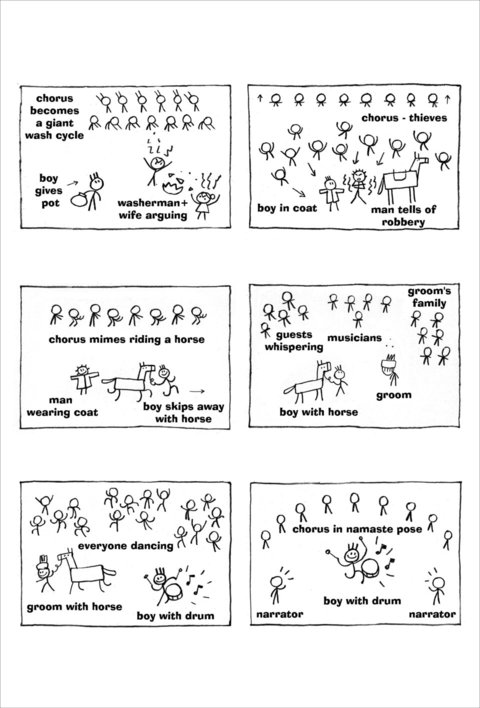 chorus
becomes
a giant
wash cycle
boy
gives
pot
washerman+
wife arguing
chorus - thieves
boy in coat
man tells of
robbery
chorus mimes riding a horse
man
wearing coat
boy skips away
with horse
groom's
family
guests
whispering
musicians
groom
boy with horse
everyone dancing
groom with horse
boy with drum
chorus in namaste pose
boy with drum
narrator
narrator